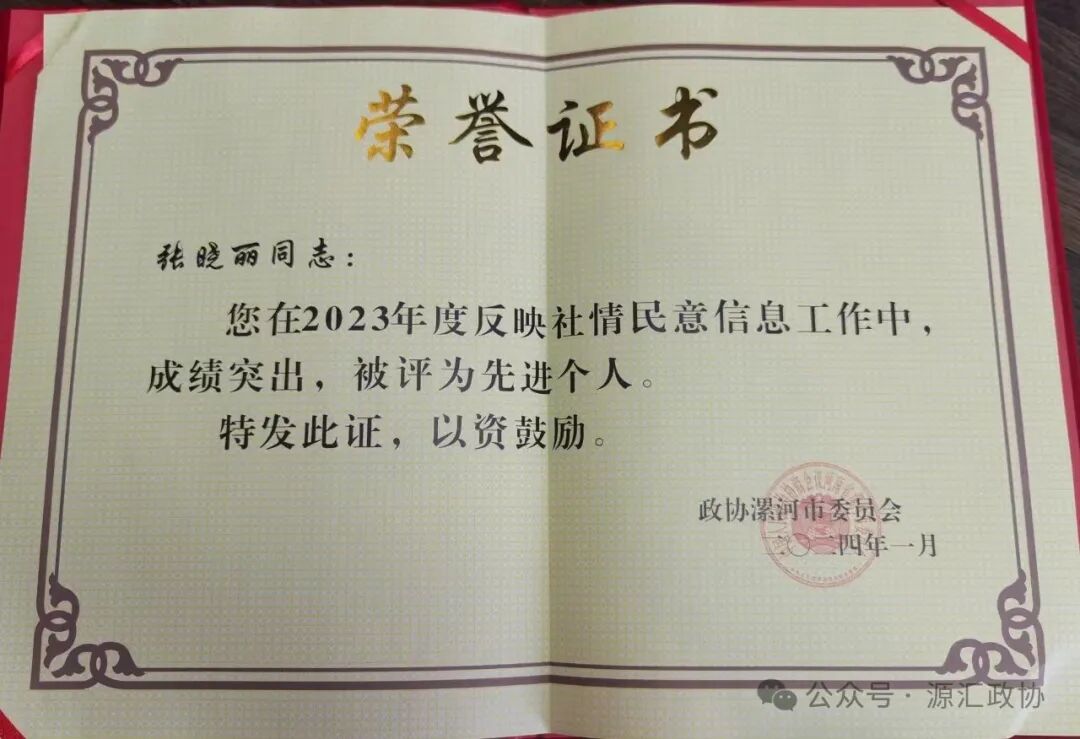 荣誉证书
张晓丽同志：
您在2023年度反映社情民意信息工作中，
成绩突出，被评为先进个人。
特发此证，以资鼓励。
政协漯河市委员会
二〇二四年一月
公众号·源汇政协